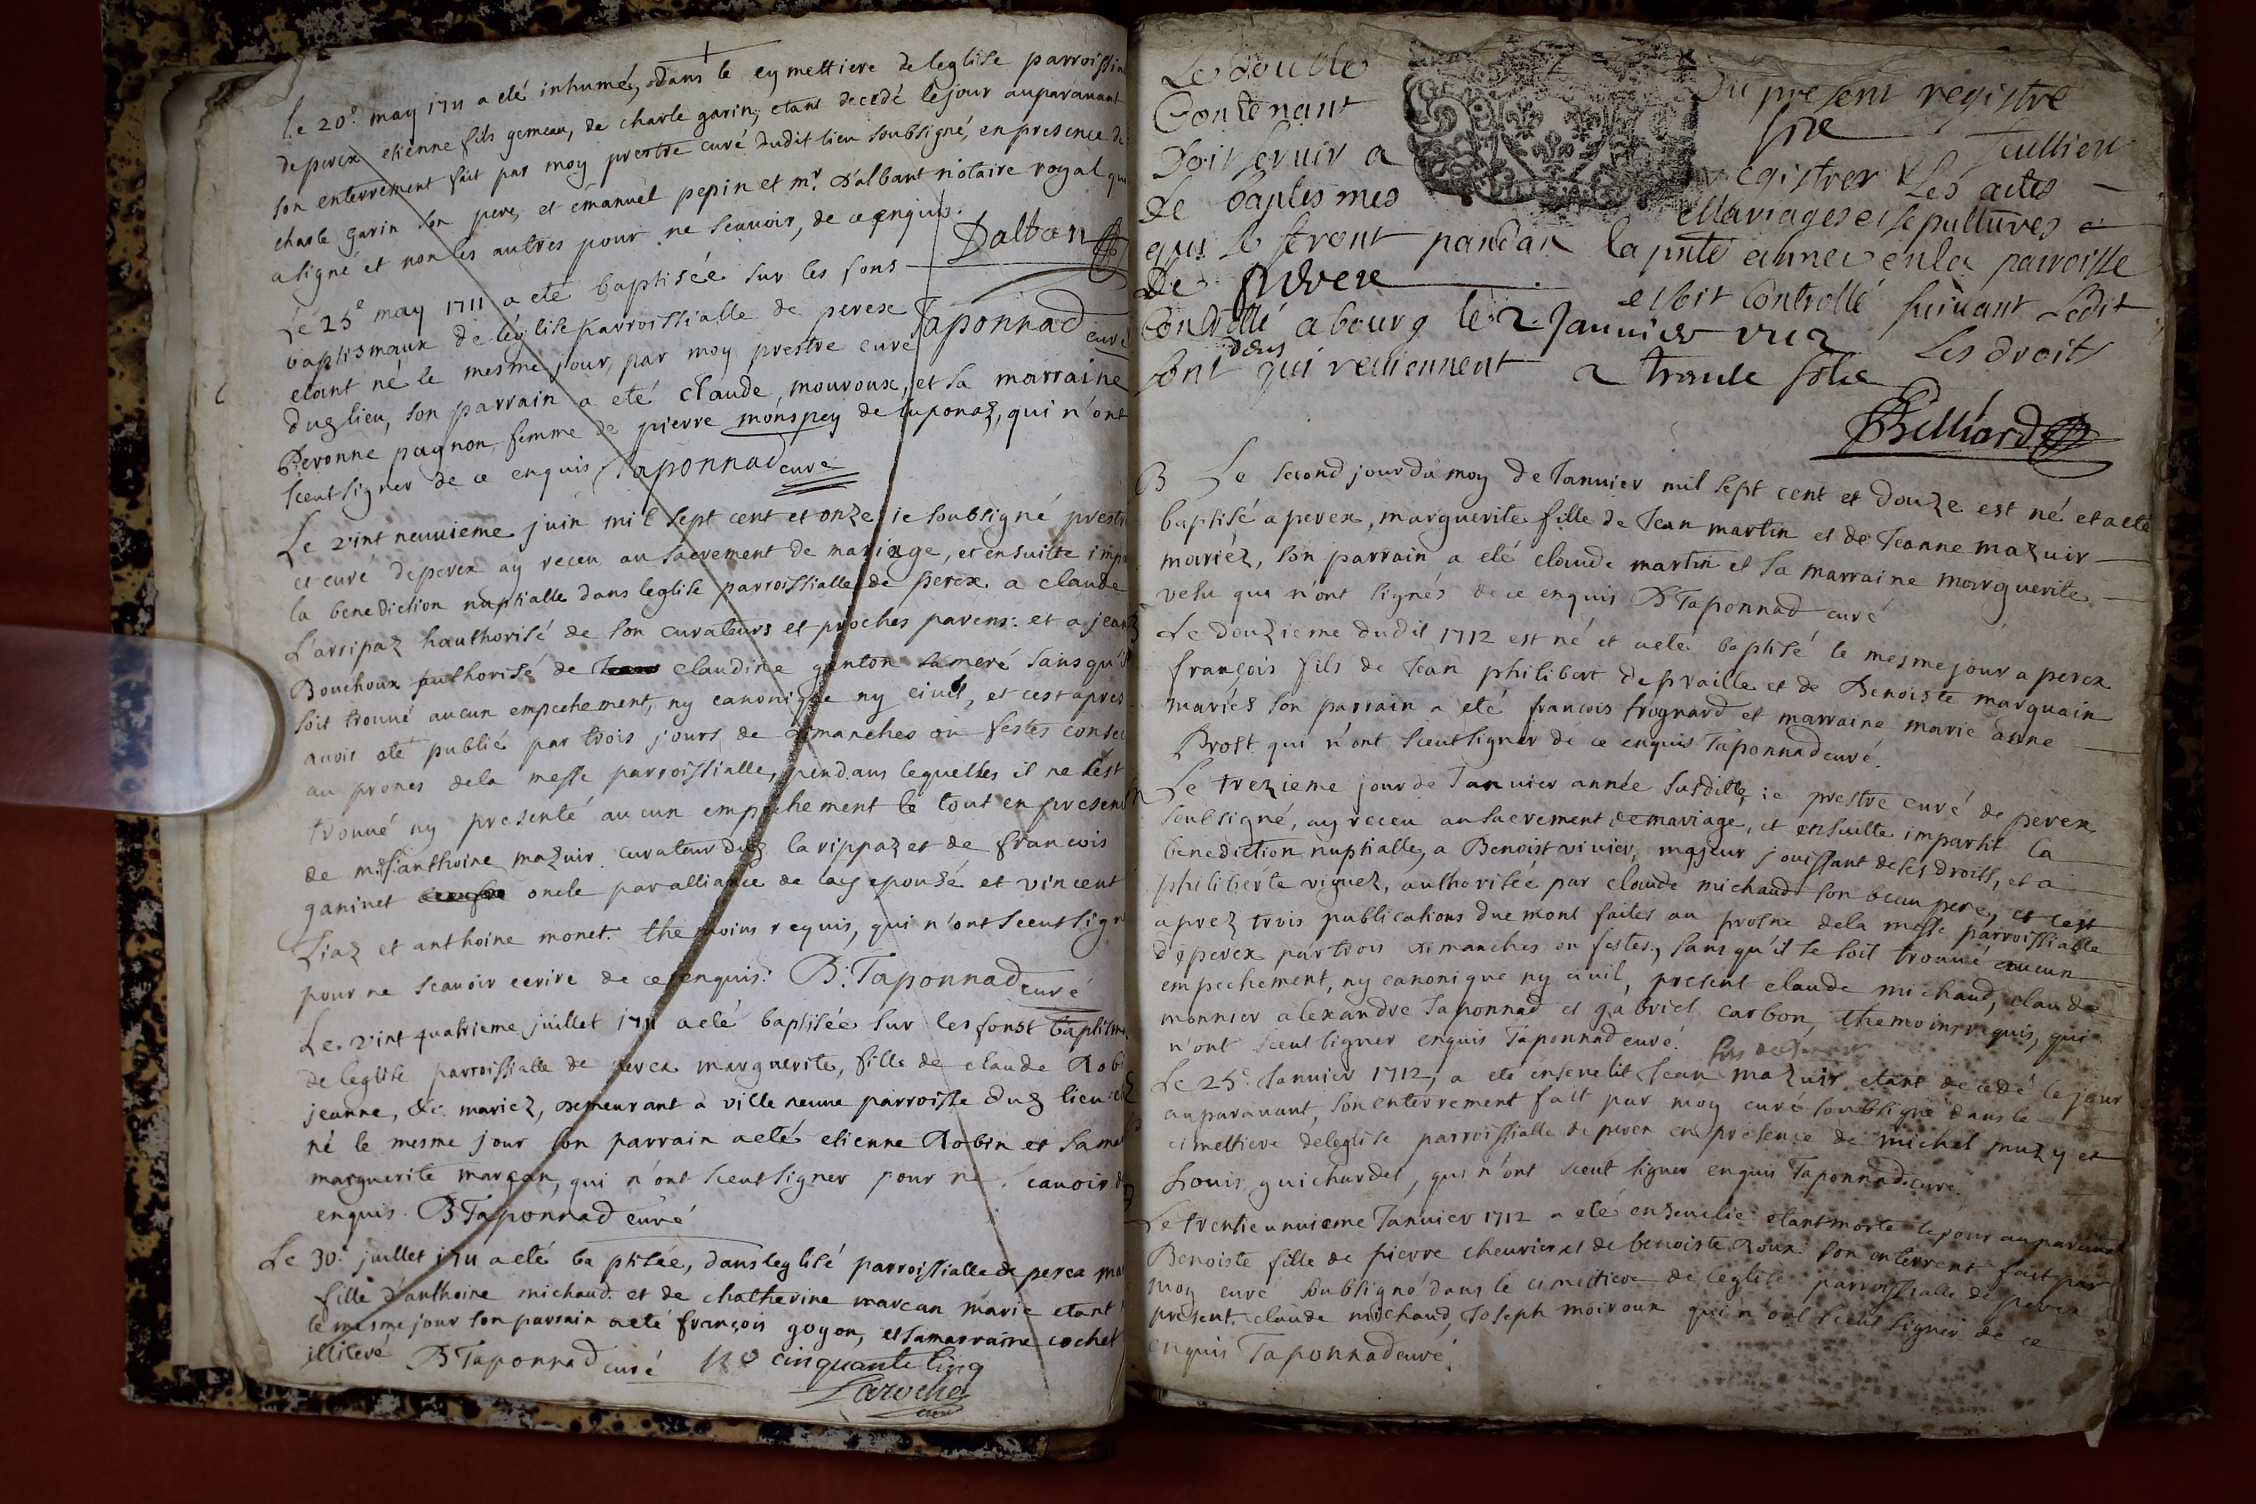 Le 20e may 1711 a eté inhumé, dans le cymettiere de leglise parroissia
de perex etienne fils gemeau, de charle garin, etant decedé lejour auparavant
son enterrement fait par moy prestre curé dudit lieu soubsigné, en presence de
charle garin son pere, et emanuel pepin et mr. D'alban notaire royal qui
a signé et non les autres pour ne scavoir, de ce enquis.
Dalban
Le 25e may 1711 a eté baptisée sur les fons
baptismaux de leglise parroissialle de perex
etant né le mesme jour, par moy prestre curé Taponnad curé
dud lieu, son parrain a eté claude mouroux, et sa marraine
Peronne pagnon femme de pierre monspey de luponaz, qui n'ont
sceut signer de ce enquis Taponnad curé
Le vint neuvieme juin mil sept cent et onze ie soubsigné prestr
et curé deperex ay receu au sacrement de mariage, et ensuitte impa
la benediction nuptialle dans leglise parroissialle de perex a claude
Larripaz hauthorisé de son curateurs et proches parens: et a jean
Bouchoux authorisé de claudine genton sa meré sans qu'il
soit trouvé aucun empechement, ny canonique ny civil, et cest apres
avoir eté publié par trois jours de dimanches ou festes consec
au prones de la messe parroissialle, pendans lequelles il ne sest
trouvé ny presenté aucun empechement le tout en presen
de mr. anthoine mazuir curateur dud larippaz et de francois
ganinet oncle par alliance de lad epousé et vincent
Liaz et anthoine monet. themoins requis, qui n'ont sceut sign
pour ne scavoir ecrire de ce enquis. B. Taponnad curé
Le vint quatrieme juillet 1711 a eté baptisée sur les fonst baptism
de leglise parroissialle de perex marguerite, fille de claude Robi
jeanne, &c mariez, demeurant à ville neuve parroisse dud lieu
né le mesme jour son parrain a eté etienne Robin et sa ma
marguerite marcan, qui n'ont sceut signer pour ne scavoir d
enquis B Taponnad curé
Le 30e juillet 1711 a eté baptisée, dans leglisé parroissialle de perex ma
fille d'anthoine michaud et de chatherine marcan marie etant
le mesme jour son parrain a eté françois goyon, et sa marraine cochet
illiteré B Taponnad curé cinquante cinq
Laroche
Le double Du present registre
Contenant
Doit servir a registrer Les actes
de baptesmes Mariages et sepultures
qui se feront pandan la pnte annee en la parroisse
De perex et soit Controllé suivant Ledit
Controllé a bourg le 2 Janvier 1712 Les droits
sont deus qui reviennent a trante solz
Billiard
B Le second jour du moy de Janvier mil sept cent et douze est né et a eté
baptisé a perex, marguerite fille de Jean martin et de Jeanne mazuir
mariéz, son parrain a eté claude martin et sa marraine marguerite
velu qui n'ont signés de ce enquis B Taponnad curé
Le douzieme dudit 1712 est né et a eté baptisé le mesme jour a perex
françois fils de Jean philibert depraille et de Benoiste marguain
mariés son parrain a eté francois frognard et marraine marie anne
Brost qui n'ont sceut signer de ce enquis Taponnad curé.
Le trezieme jour de Janvier année susditte, ie prestre curé de perex
soubsigné, ay receu au sacrement de mariage, et ensuitte imparti la
benediction nuptialle, a Benoist vivier, majeur jouissant de ses droits, et a
philiberte viguez, authorisée par claude michaud son beau pere, et cest
aprez trois publications duemont faites au prosne de la messe parroissialle
de perex par trois dimanches ou festes, sans qu'il se soit trouvé aucun
empechement, ny canonique ny civil, present claude michaud, claude
monnier alexandre Taponnad et gabriel carbon, themoins requis, qui
n'ont sceut signer enquis Taponnad curé.
Le 25e Janvier 1712, a eté ensevelit Jean mazuir etant decedé le jour
auparavant, son enterrement fait par moy curé soubsigné dans le
cimettiere de leglise parroissialle de perex en presence de michel muzy et
Louis guichardet, qui n'ont sceut signer enquis Taponnad curé.
Le trentieunuieme Janvier 1712 a eté ensevelie etant morte le jour auparavant
Benoiste fille de pierre chevrier et de benoiste Roux son enterrent fait par
moy curé soubsigné dans le cimettiere de leglise parroissialle de perex
present claude michaud, Joseph moiroux qui n'ont sceut signer de ce
enquis Taponnad curé.